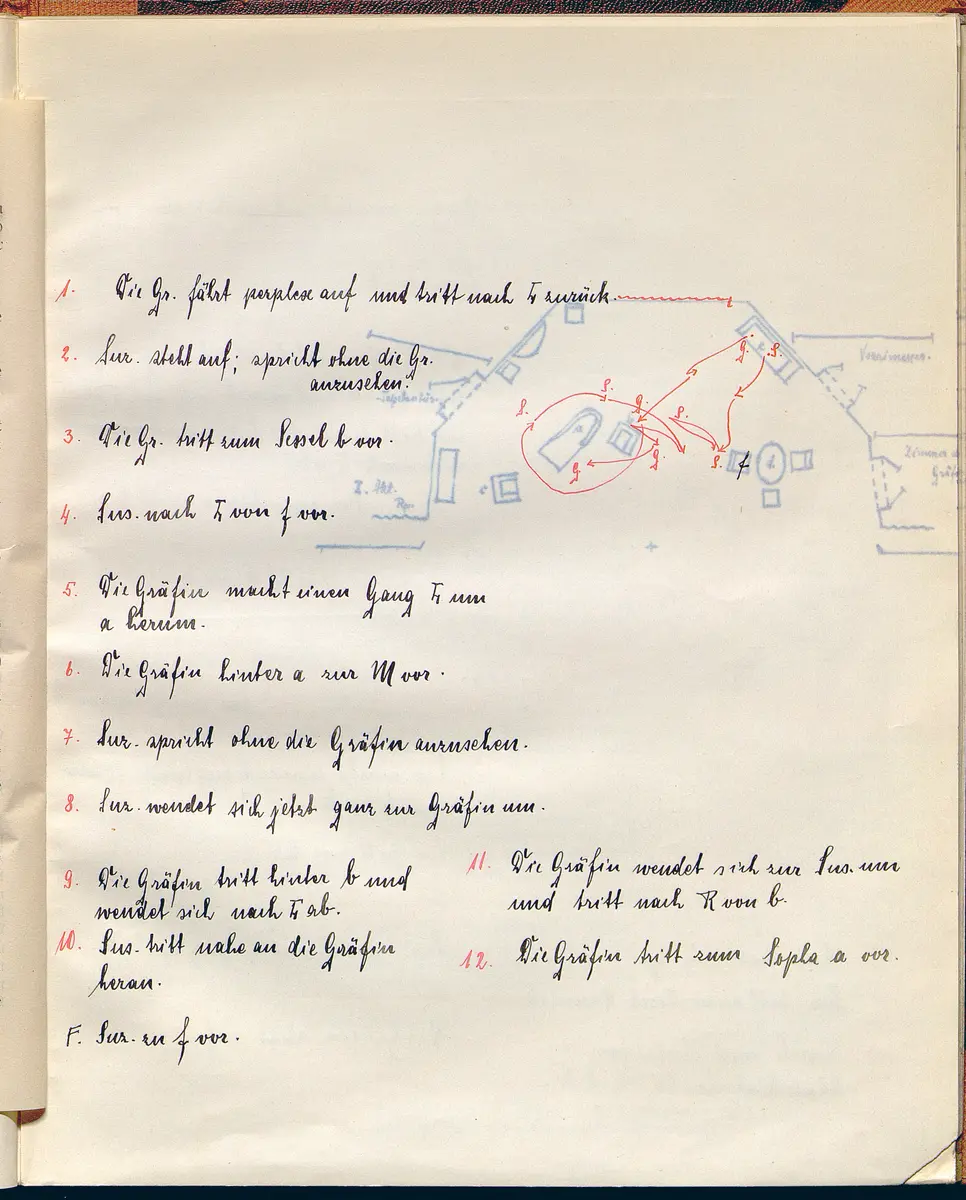 1. Die Gr. fährt perplex auf und tritt nach L zurück.
2. Suz. steht auf; spricht ohne die Gr.
anzusehen.
3. Die Gr. tritt zum Sessel b vor.
4. Sus. nach L von f vor.
5. Die Gräfin macht einen Gang L um
a herum.
6. Die Gräfin hinter a zur M vor.
7. Suz. spricht ohne die Gräfin anzusehen.
8. Suz. wendet sich jetzt ganz zur Gräfin um.
9. Die Gräfin tritt hinter b und
wendet sich nach L ab.
10. Sus. tritt nahe an die Gräfin
heran.
F. Suz. zu f vor.
11. Die Gräfin wendet sich zur Sus. um
und tritt nach R von b.
12. Die Gräfin tritt zum Sopha a vor.
g. S.
S. S. g. S.
g. g. S. f
Tapetentür.
Zimmer d.
Gräfin